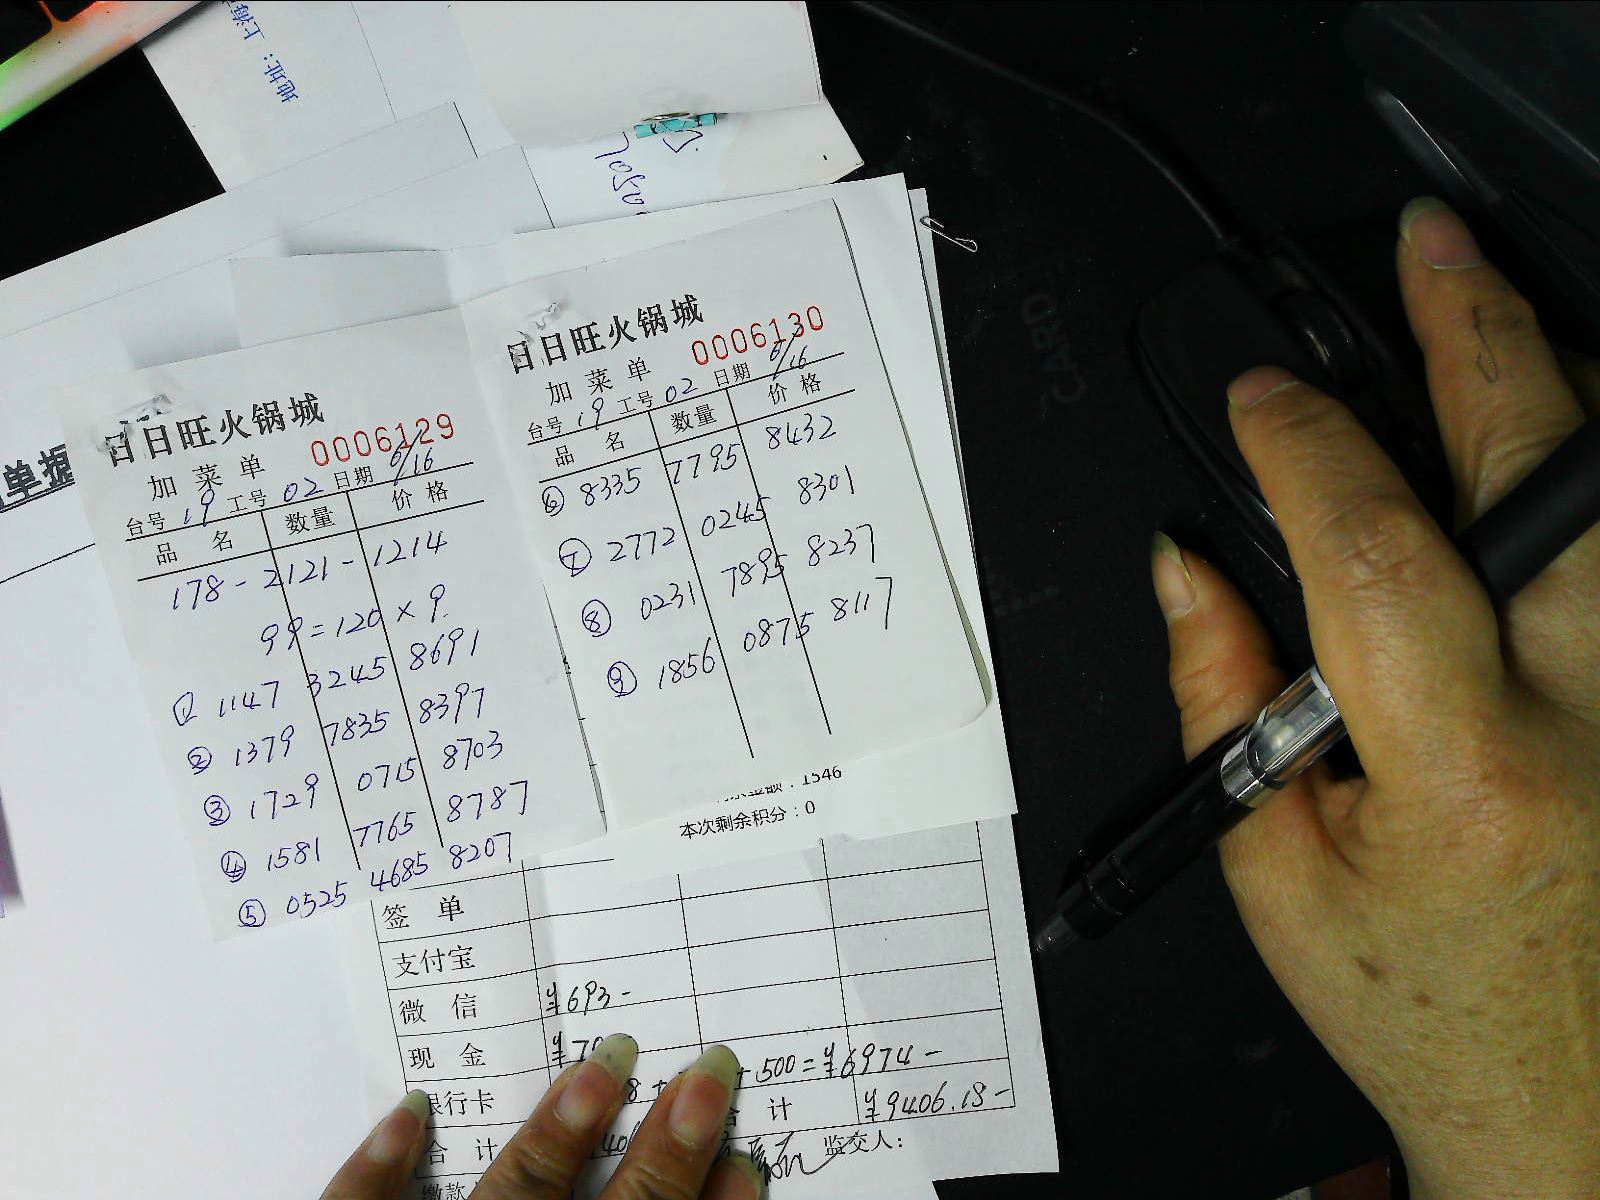 地址：上海
7050
单据
日日旺火锅城
0006129
加菜单
台号 19 工号 02 日期 6/16
品名 数量 价格
178-2121-1214
99=120×9.
① 1147 3245 8691
② 1379 7835 8397
③ 1729 0715 8703
④ 1581 7765 8787
⑤ 0525 4685 8207
日日旺火锅城
0006130
加菜单
台号 19 工号 02 日期 6/16
品名 数量 价格
⑥ 8335 7795 8432
⑦ 2772 0245 8301
⑧ 0231 7895 8237
⑨ 1856 0875 8117
：1546
本次剩余积分：0
签单
支付宝
微信 ¥693-
现金 ¥70
银行卡 8+ +500=¥6974-
合计 合计 ¥9406.18-
缴款 监交人：
CARD